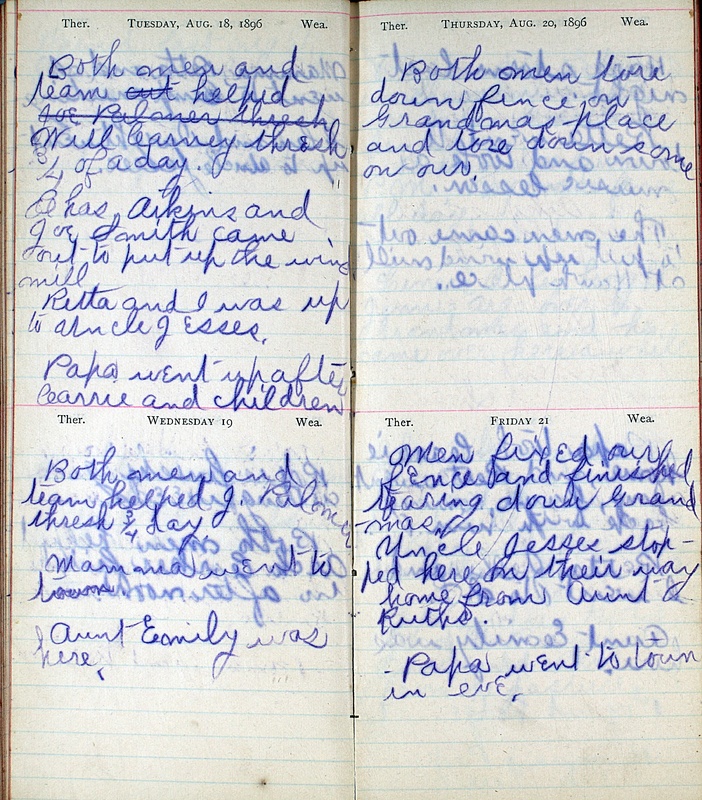 Ther. TUESDAY, AUG. 18, 1896 Wea.
Both men and
team cut helped
Joe Palmer thresh
Will Cearney thresh
3/4 of a day.
Chas. Atkins and
Joe Smith came
out to put up the wind
mill
Retta and I was up
to Uncle Jesses.
Papa went up after
Carrie and children
Ther. WEDNESDAY 19 Wea.
Both men and
team helped J. Palmer
thresh 3/4 day.
Mamma went to
town
Aunt Eemily was
here.
Ther. THURSDAY, AUG. 20, 1896 Wea.
Both men tore
down fence on
Grandmas place
and tore down some
on our.
Ther. FRIDAY 21 Wea.
Men fixed our
fence and finished
tearing down Grand
-mas.
Uncle Jesses stop-
ped here on their way
home from Aunt
Ruths.
- Papa went to town
in eve.